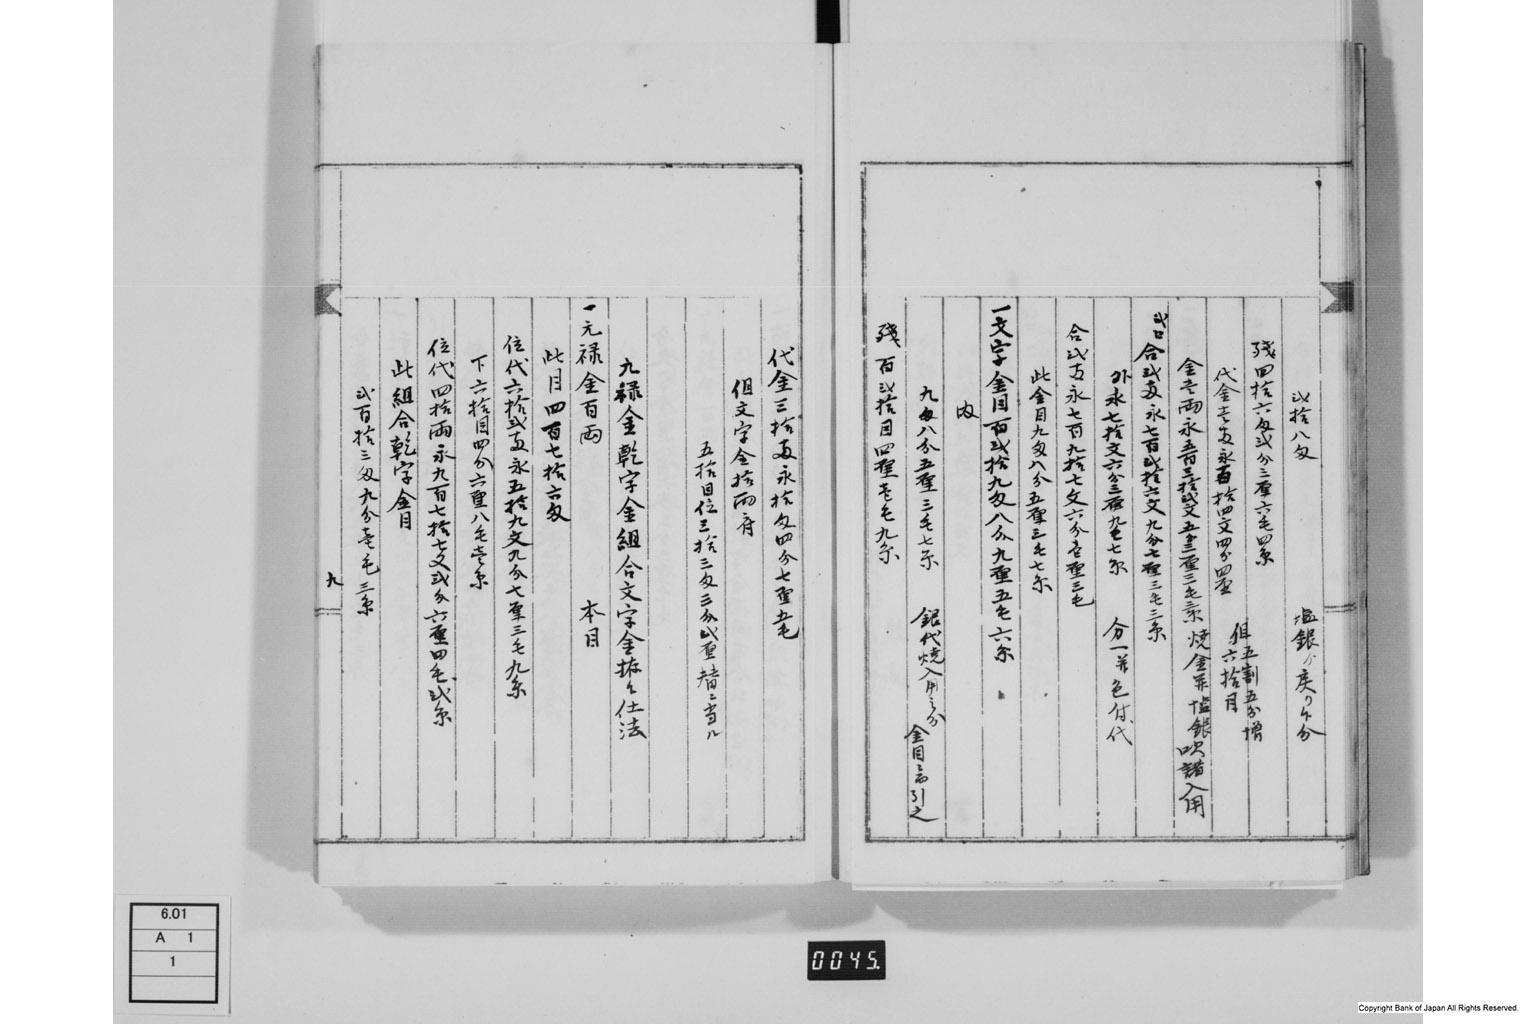 弐拾八匁 塩銀ゟ戻り午分
残四拾六匁弐分三厘六毛四糸
但五割五分増
六拾目
代金壱両永百拾四文四分四厘
金壱両永五百三拾弐文五分三厘三毛三糸 焼金并塩銀吹諸入用
弐口
合弐両永七百弐拾六文九分七厘三毛三糸
外永七拾文六分三厘九毛七糸 分一并色付代
合弐両永七百九拾七文六分壱厘三毛
此金目九匁八分五厘三毛七糸
一文字金目百弐拾九匁八分九厘五毛六糸
内
九匁八分五厘三毛七糸 銀代焼入用之分
金目ニ而引之
残百弐拾目四厘壱毛九糸
代金三拾両永拾匁四分七厘五毛
但文字金拾両ニ付
五拾目位三拾三匁三分弐厘替ニ当ル
元禄金乾字金組合文字金拵之仕法
一元禄金百両 本目
此目四百七拾六匁
位代六拾弐両永五拾九文九分七厘三毛九糸
下六拾目四分六厘八毛壱糸
位代四拾両永九百七拾七文弐分六厘四毛弐糸
此組合乾字金目
弐百拾三匁九分壱毛三糸
九
6.01
A 1
1
0045.
Copyright Bank of Japan All Rights Reserved.